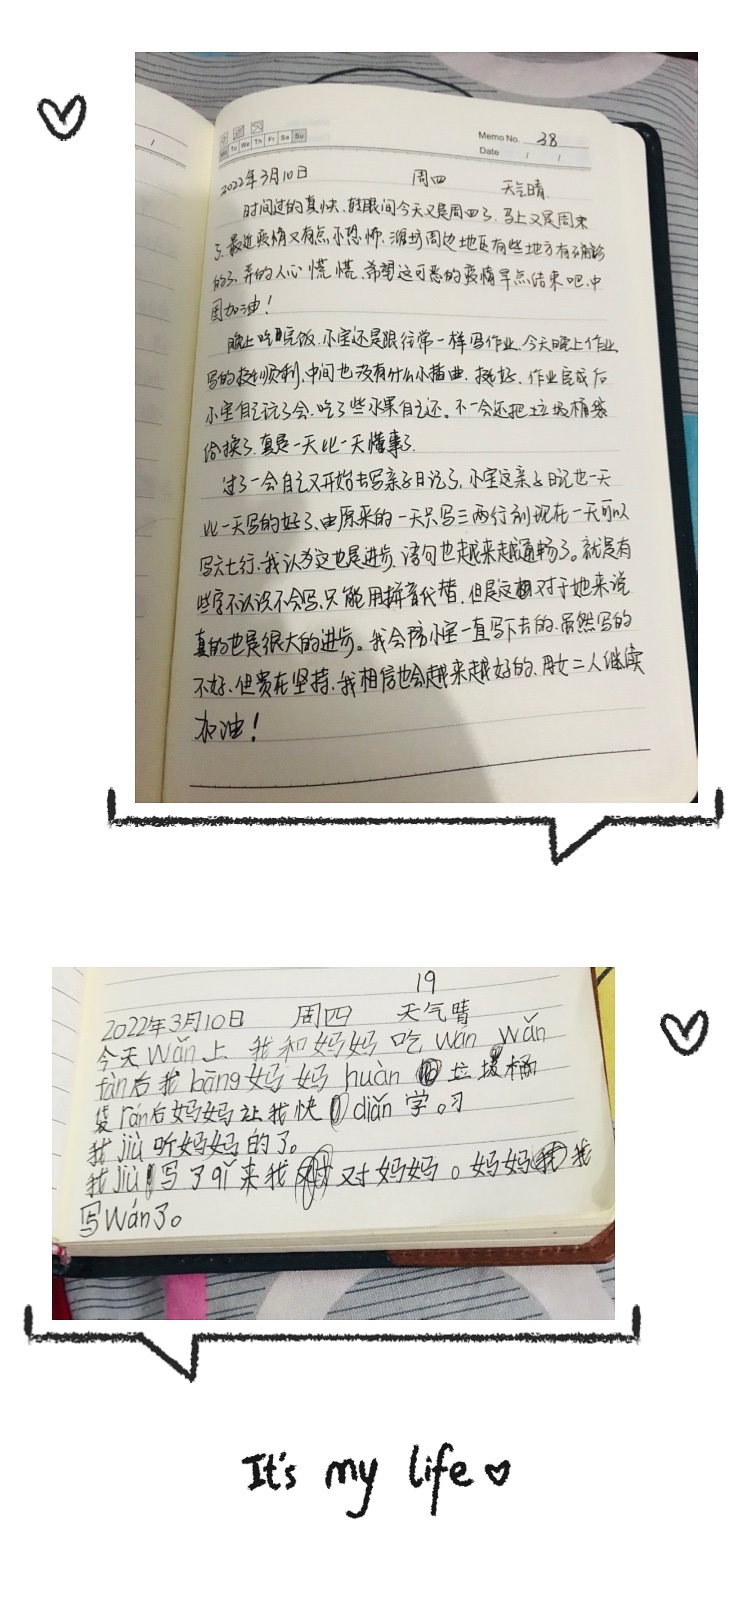 Mo Tu We Th Fr Sa Su
Memo No. 38
Date / /
2022年3月10日 周四 天气晴.
时间过的真快、转眼间今天又是周四了、马上又是周末
了、最近疫情又有点小恐怖、潍坊周边地区有些地方有确诊
的了、弄的人心慌慌、希望这可恶的疫情早点结束吧、中
国加油!
晚上吃完饭、小宝还是跟往常一样写作业、今天晚上作业
写的挺顺利、中间也没有什么小插曲、挺好、作业完成后
小宝自己玩了会、吃了些水果自己还。不一会还把垃圾桶袋
给换了、真是一天比一天懂事了.
过了一会自己又开始去写亲子日记了、小宝这亲子日记也一天
比一天写的好了、由原来的一天只写三两行到现在一天可以
写六七行、我认为这也是进步、语句也越来越通畅了。就是有
些字不认识不会写、只能用拼音代替、但是这相对于她来说
真的也是很大的进步。我会陪小宝一直写下去的、虽然写的
不好、但贵在坚持、我相信也会越来越好的、母女二人继续
加油!
19
2022年3月10日 周四 天气晴
今天wǎn上 我和妈妈 吃 wán wǎn
fàn后我bāng妈妈 huàn 垃圾桶
袋rán后妈妈让我快diǎn 学。习
我jiù听妈妈的了。
我jiù写了qǐ来我 对妈妈。妈妈 我
写wán了。
It's my life